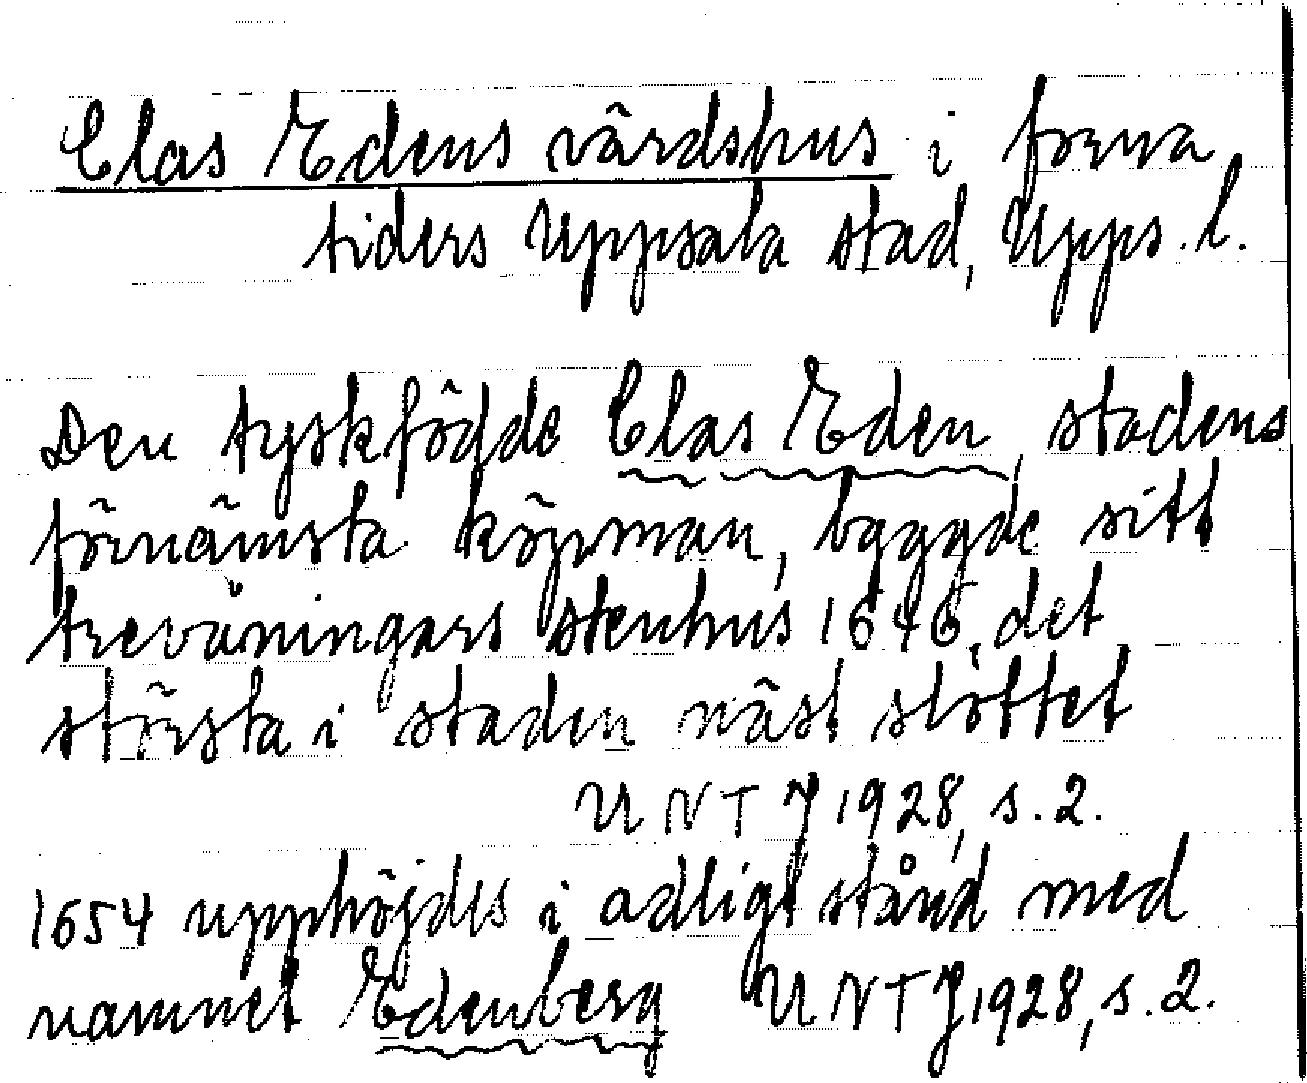 Clas Edens värdshus i forna
tiders Uppsala stad, Upps. l.
Den tyskfödde Clas Eden, stadens
förnämsta köpman, byggde sitt
trevåningars stenhus 1646, det
största i staden näst slottet
UNTJ 1928, s. 2.
1654 upphöjdes i adligt stånd med
namnet Edenberg UNTJ 1928, s. 2.